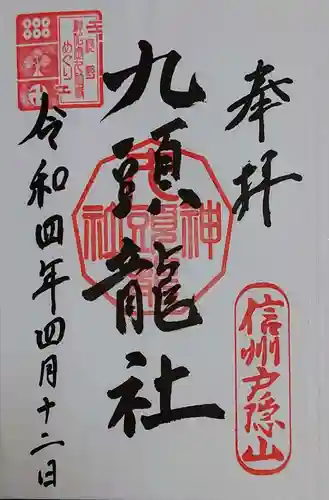 奉拝
信州戸隠山
九頭龍社
令和四年四月十二日